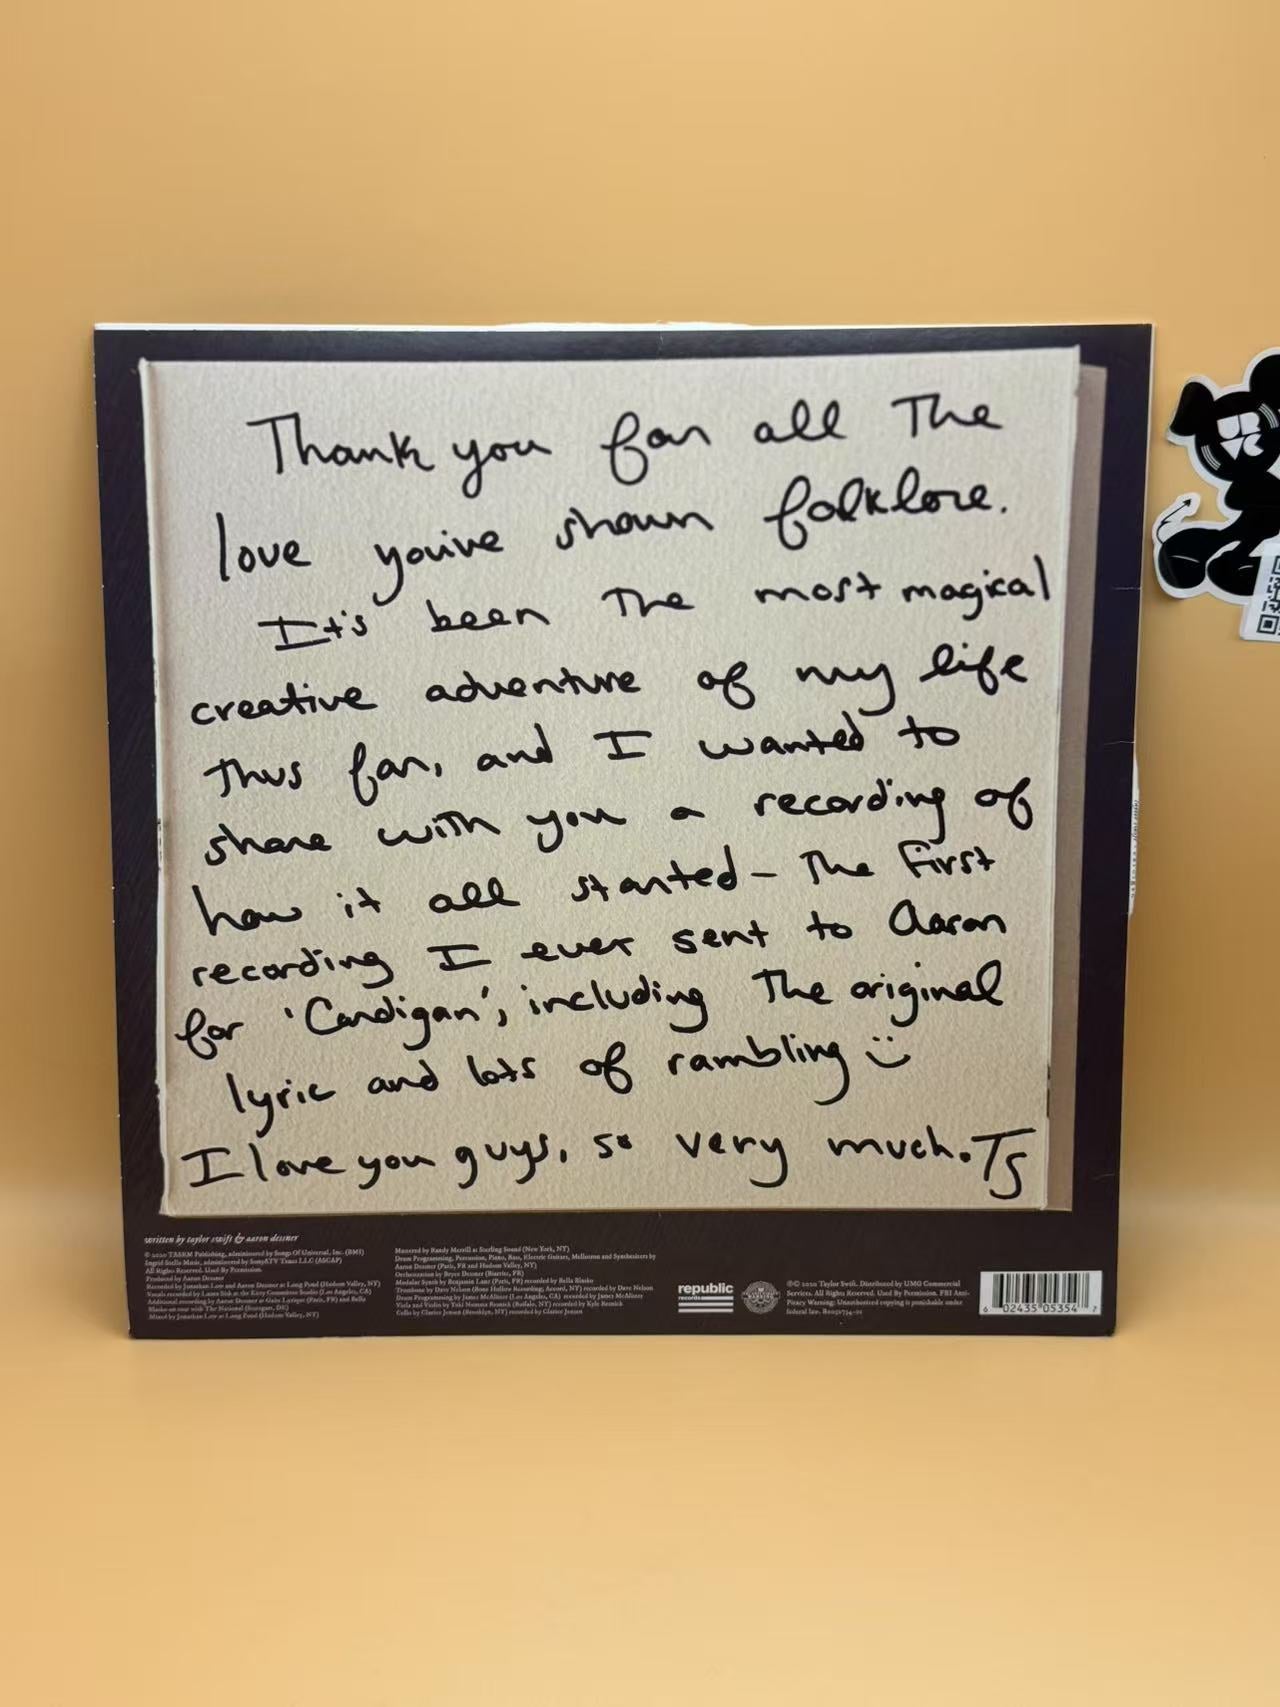 Thank you for all The
love you've shown folklore.
It's been The most magical
creative adventure of my life
thus far, and I wanted to
share with you a recording of
how it all started - The first
recording I ever sent to Aaron
for 'Cardigan', including The original
lyric and lots of rambling
I love you guys, so very much. TS
written by taylor swift & aaron dessner
© 2020 TASRM Publishing, administered by Songs Of Universal, Inc. (BMI)
Ingrid Stella Music, administered by Sony/ATV Tunes LLC (ASCAP)
All Rights Reserved. Used By Permission.
Produced by Aaron Dessner
Recorded by Jonathan Low and Aaron Dessner at Long Pond (Hudson Valley, NY)
Vocals recorded by Laura Sisk at the Kitty Committee Studio (Los Angeles, CA)
Additional recording by Aaron Dessner at (Paris, FR) and Bella
Blasko on tour with The National (Stuttgart, DE)
Mixed by Jonathan Low at Long Pond (Hudson Valley, NY)
Mastered by Randy Merrill at Sterling Sound (New York, NY)
Drum Programming, Percussion, Piano, Bass, Electric Guitars, Mellotron and Synthesizers by
Aaron Dessner (Paris, FR and Hudson Valley, NY)
Orchestration by Bryce Dessner (Biarritz, FR)
Modular Synth by Benjamin Lanz (Paris, FR) recorded by Bella Blasko
Trombone by Dave Nelson (Bone Hollow Recording; Accord, NY) recorded by Dave Nelson
Drum Programming by James McAlister (Los Angeles, CA) recorded by James McAlister
Viola and Violin by Yuki Numata Resnick (Buffalo, NY) recorded by Kyle Resnick
Cello by Clarice Jensen (Brooklyn, NY) recorded by Clarice Jensen
republic
records
℗© 2020 Taylor Swift. Distributed by UMG Commercial
Services. All Rights Reserved. Used By Permission. FBI Anti-
Piracy Warning: Unauthorized copying is punishable under
federal law.
6 02435 05354 7